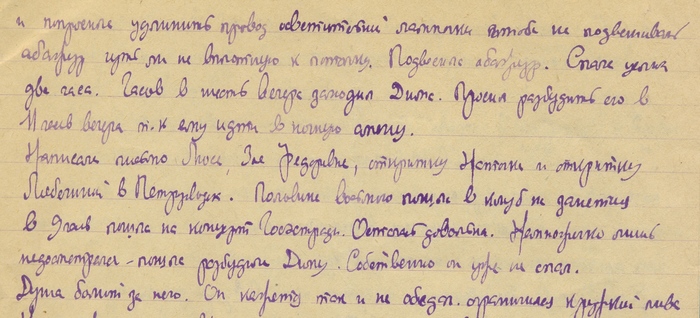 и попросила удлинить провод осветительной лампочки чтоб не подвешивать
абажур чуть ли не вплотную к потолку. Подвесила абажур. Спала ужина
два часа. Часов в шесть вечера заходил Дима. Просил разбудить его в
11 часов вечера т.к ему идти в ночную смену.
Написала письмо Люсе, Зое Федоровне, открытку Наточке и открытку
Любочкиной в Петрозаводск. Половине восьмого пошла в клуб на занятия
в 9 часов пошла на концерт Госэстрады. Осталась довольна. Немножечко лишь
недосмотрела - пошла разбудила Диму. Собственно он уже не спал.
Душа болит за него. Он кажется так и не обедал. ограничился кружкой пива